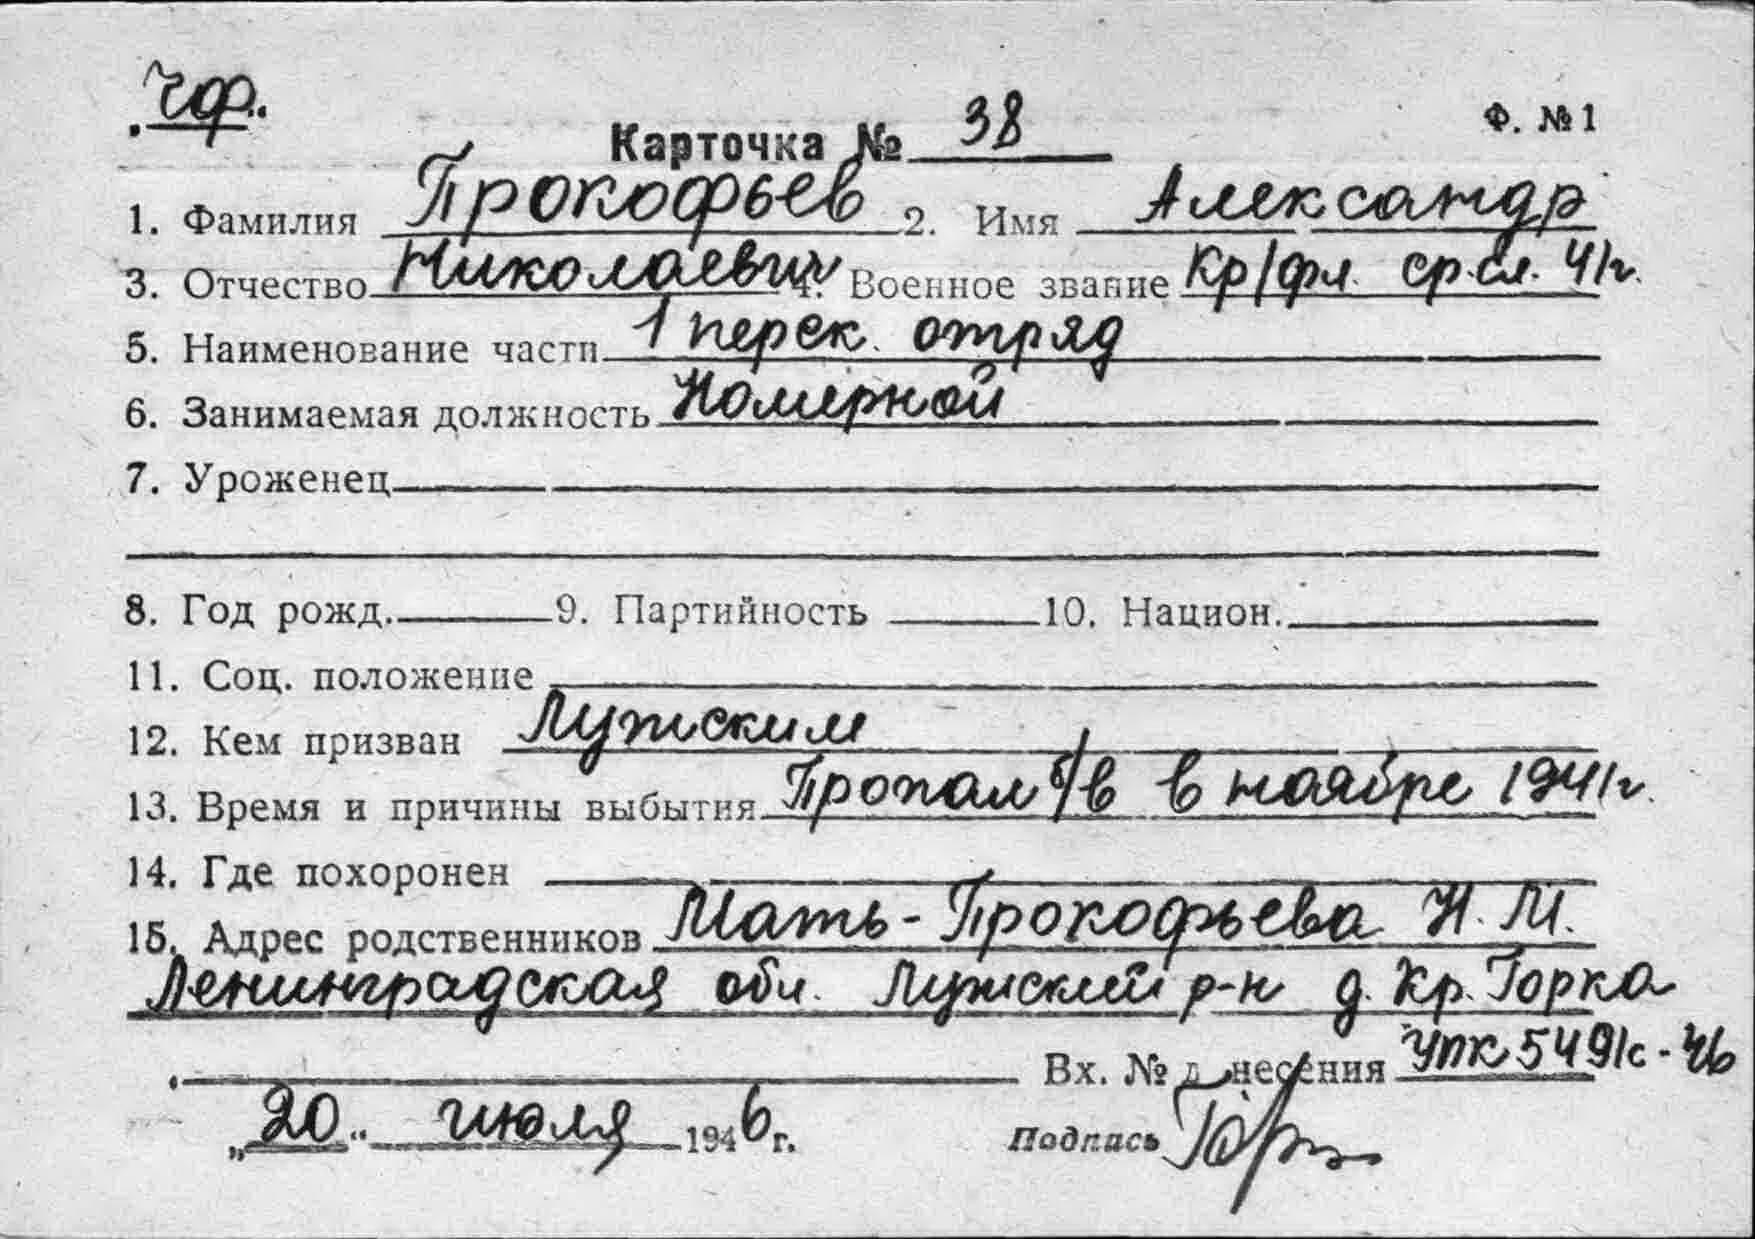 Чф.
Ф. № 1
Карточка № 38
1. Фамилия Прокофьев 2. Имя Александр
3. Отчество Николаевич 4. Военное звание Кр/фл. ср.сл. 41г.
5. Наименование части 1 перек. отряд
6. Занимаемая должность Номерной
7. Уроженец
8. Год рожд. 9. Партийность 10. Национ.
11. Соц. положение
12. Кем призван Лужским
13. Время и причины выбытия Пропал б/в в ноябре 1941г.
14. Где похоронен
15. Адрес родственников Мать - Прокофьева Н. М.
Ленинградская обл. Лужский р-н д. Кр. Горка
Вх. № донесения УПК 5491с - 46
„20" июля 1946 г. Подпись